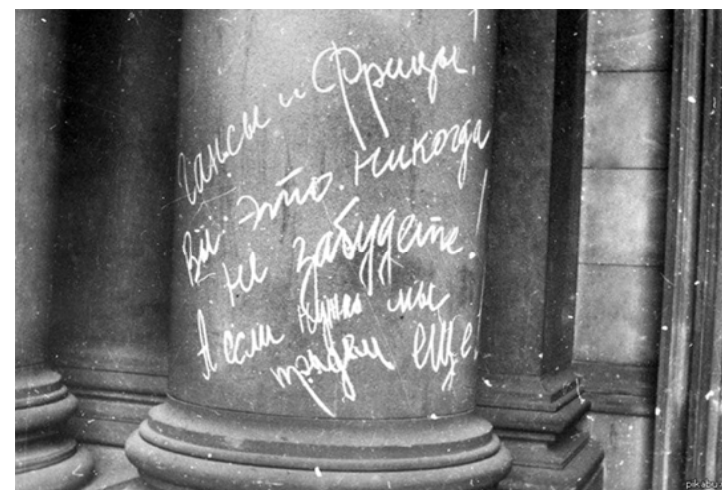 Гансы и Фрицы!
Вы это никогда
не забудете!
А если нужно мы
придем еще!
pikabu